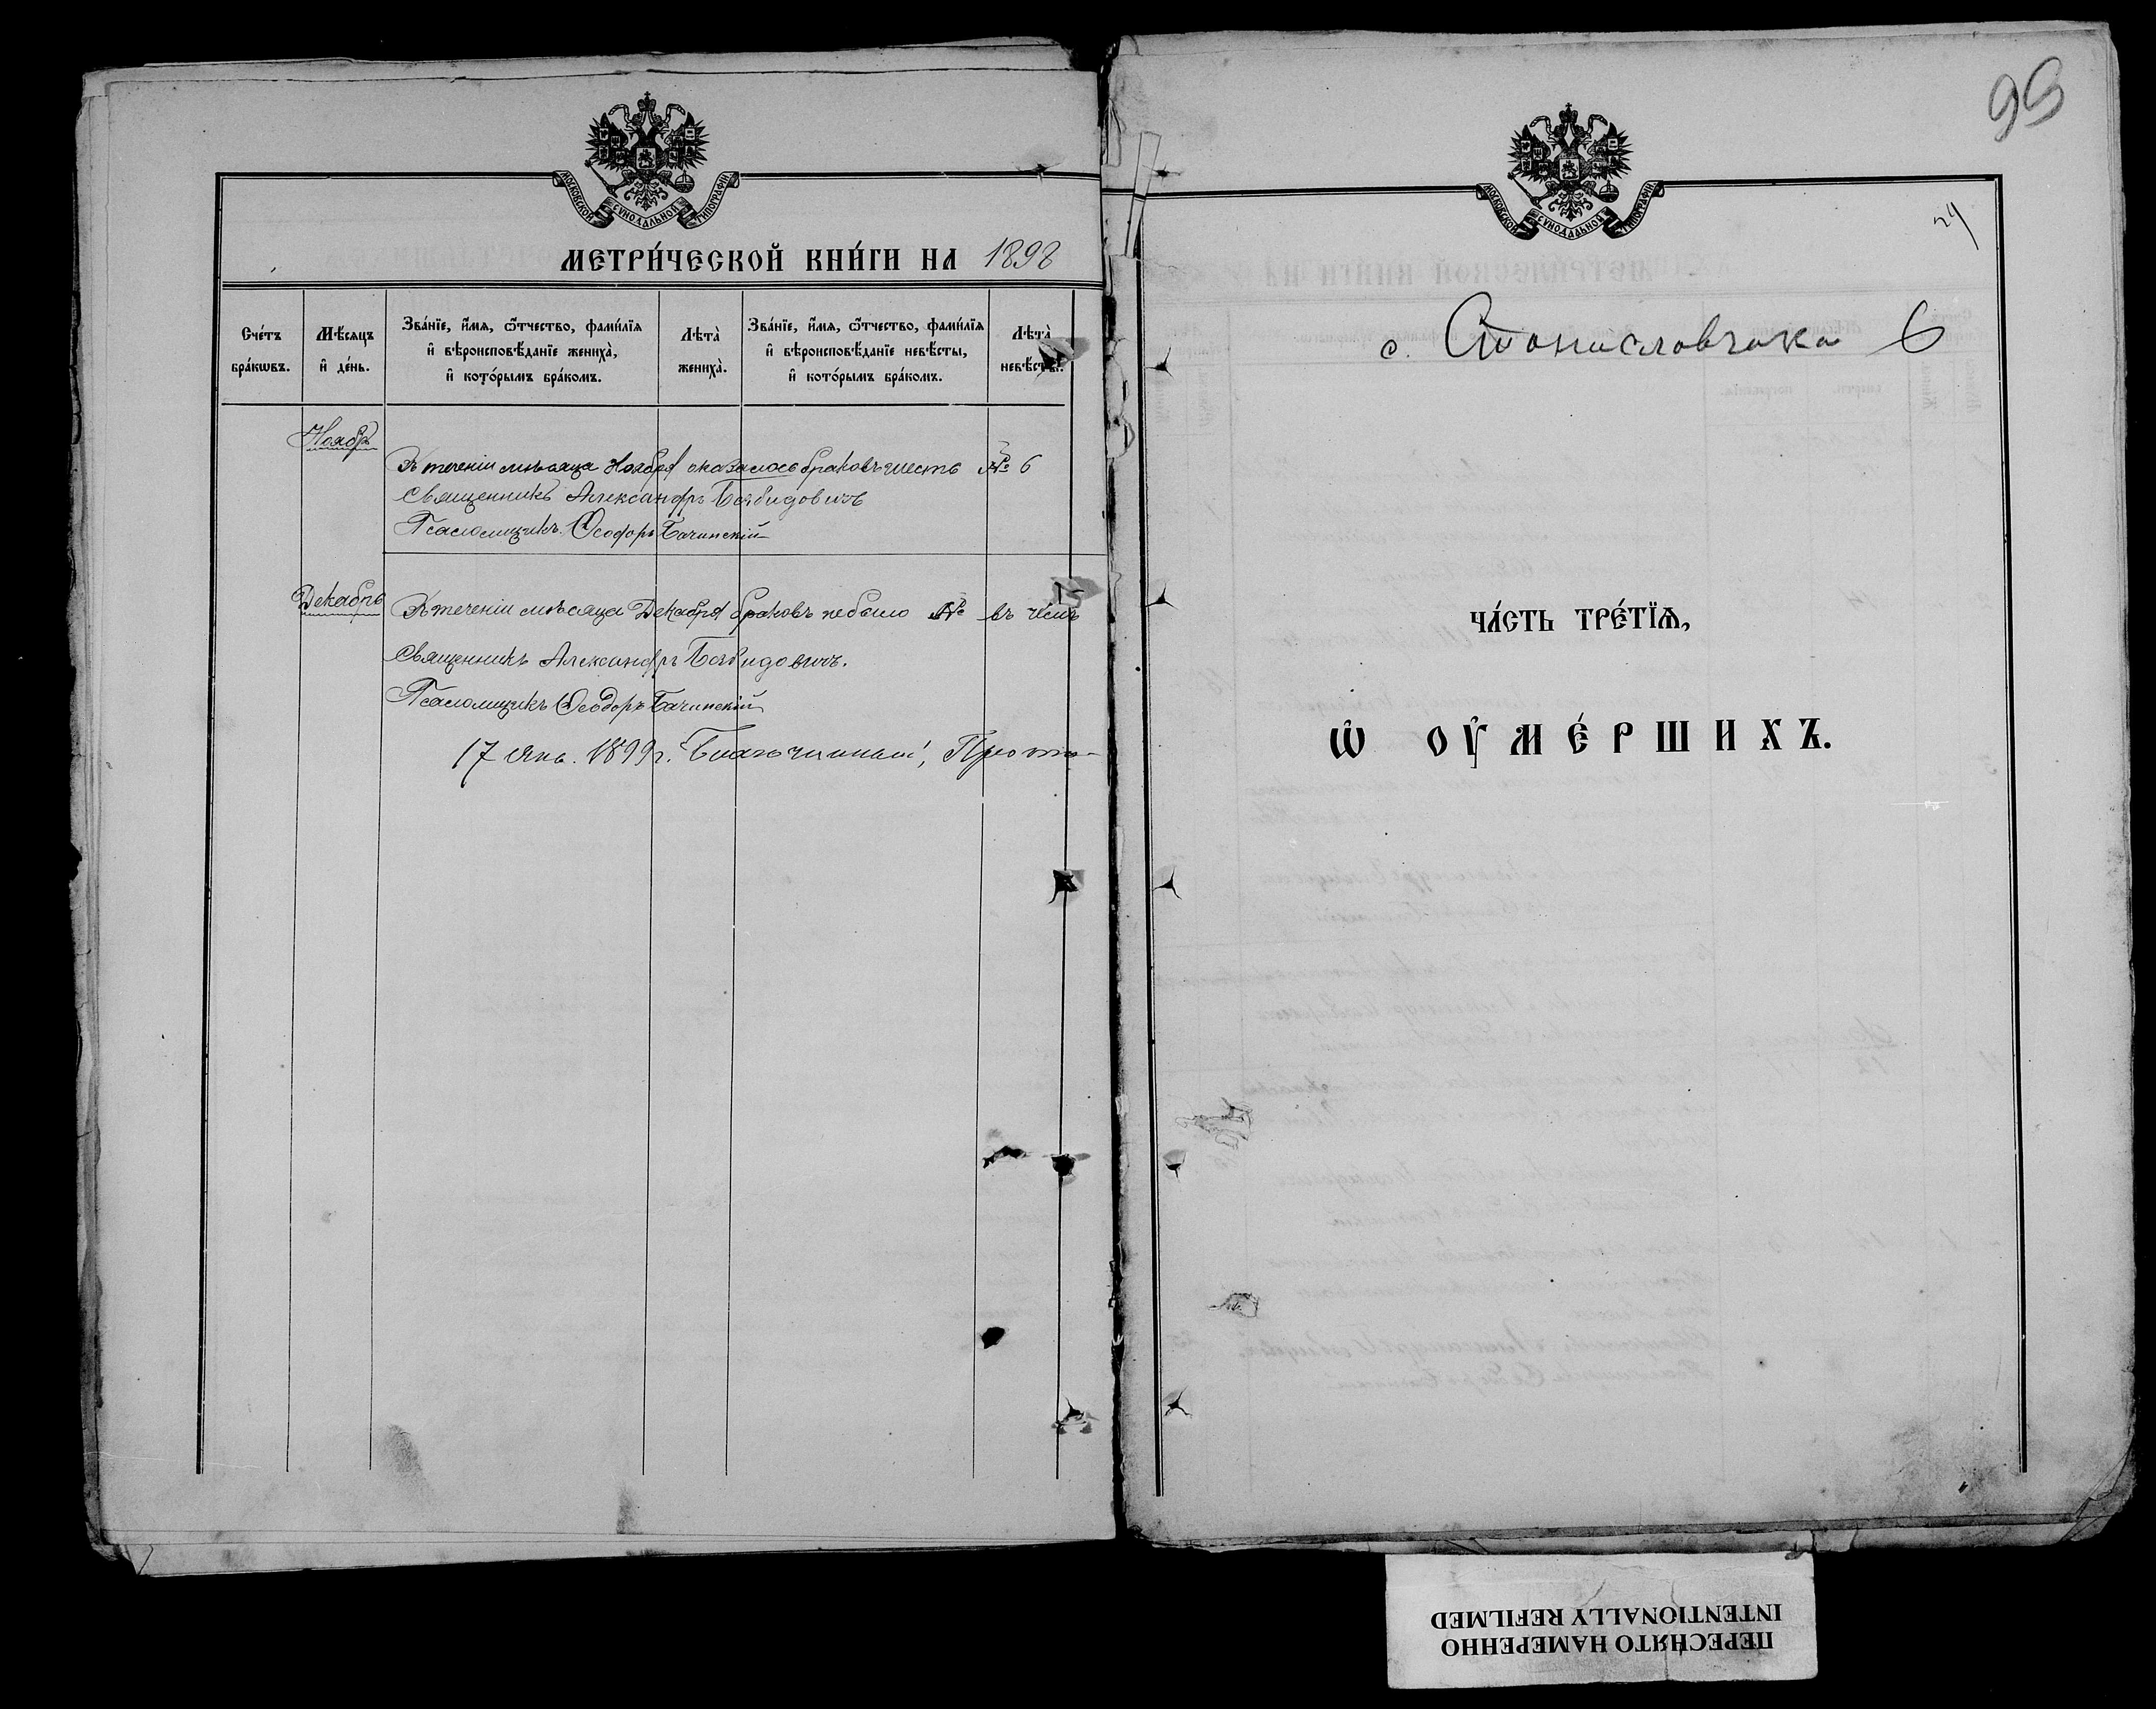 МОСКОВСКОЙ СѴНОДАЛЬНОЙ ТИПОГРАФІИ
МЕТРИ́ЧЕСКОЙ КНИ́ГИ НА 1898
Сче́тъ бра́кѡвъ.
Мѣ́сяцъ и҆ де́нь.
Зва́нїе, и҆́мѧ, ѻ҆́тчество, фами́лїѧ и҆ вѣроисповѣ́данїе жениха̀, и҆ кото́рымъ бра́комъ.
Лѣта̀ жениха̀.
Зва́нїе, и҆́мѧ, ѻ҆́тчество, фами́лїѧ и҆ вѣроисповѣ́данїе невѣ́сты, и҆ кото́рымъ бра́комъ.
Лѣта̀ невѣ́сты.
Ноябрь
Въ теченіи мѣсяца Ноября оказалось браковъ шесть № 6
Священникъ Александръ
Псаломщикъ Ѳеодоръ Бачинскій
Декабрь
Въ теченіи мѣсяца Декабря браковъ небыло № въ чемъ
Священникъ Александръ
Псаломщикъ Ѳеодоръ Бачинскій
17 Янв. 1899 г. Благочинный, Прото-
99
МОСКОВСКОЙ СѴНОДАЛЬНОЙ ТИПОГРАФІИ
24
с. Станиславчика 6
ЧА́СТЬ ТРЕ́ТЇѦ,
Ѡ҆ ОУ҆МЕ́РШИХЪ.
ПЕРЕСНЯТО НАМЕРЕННО
INTENTIONALLY REFILMED